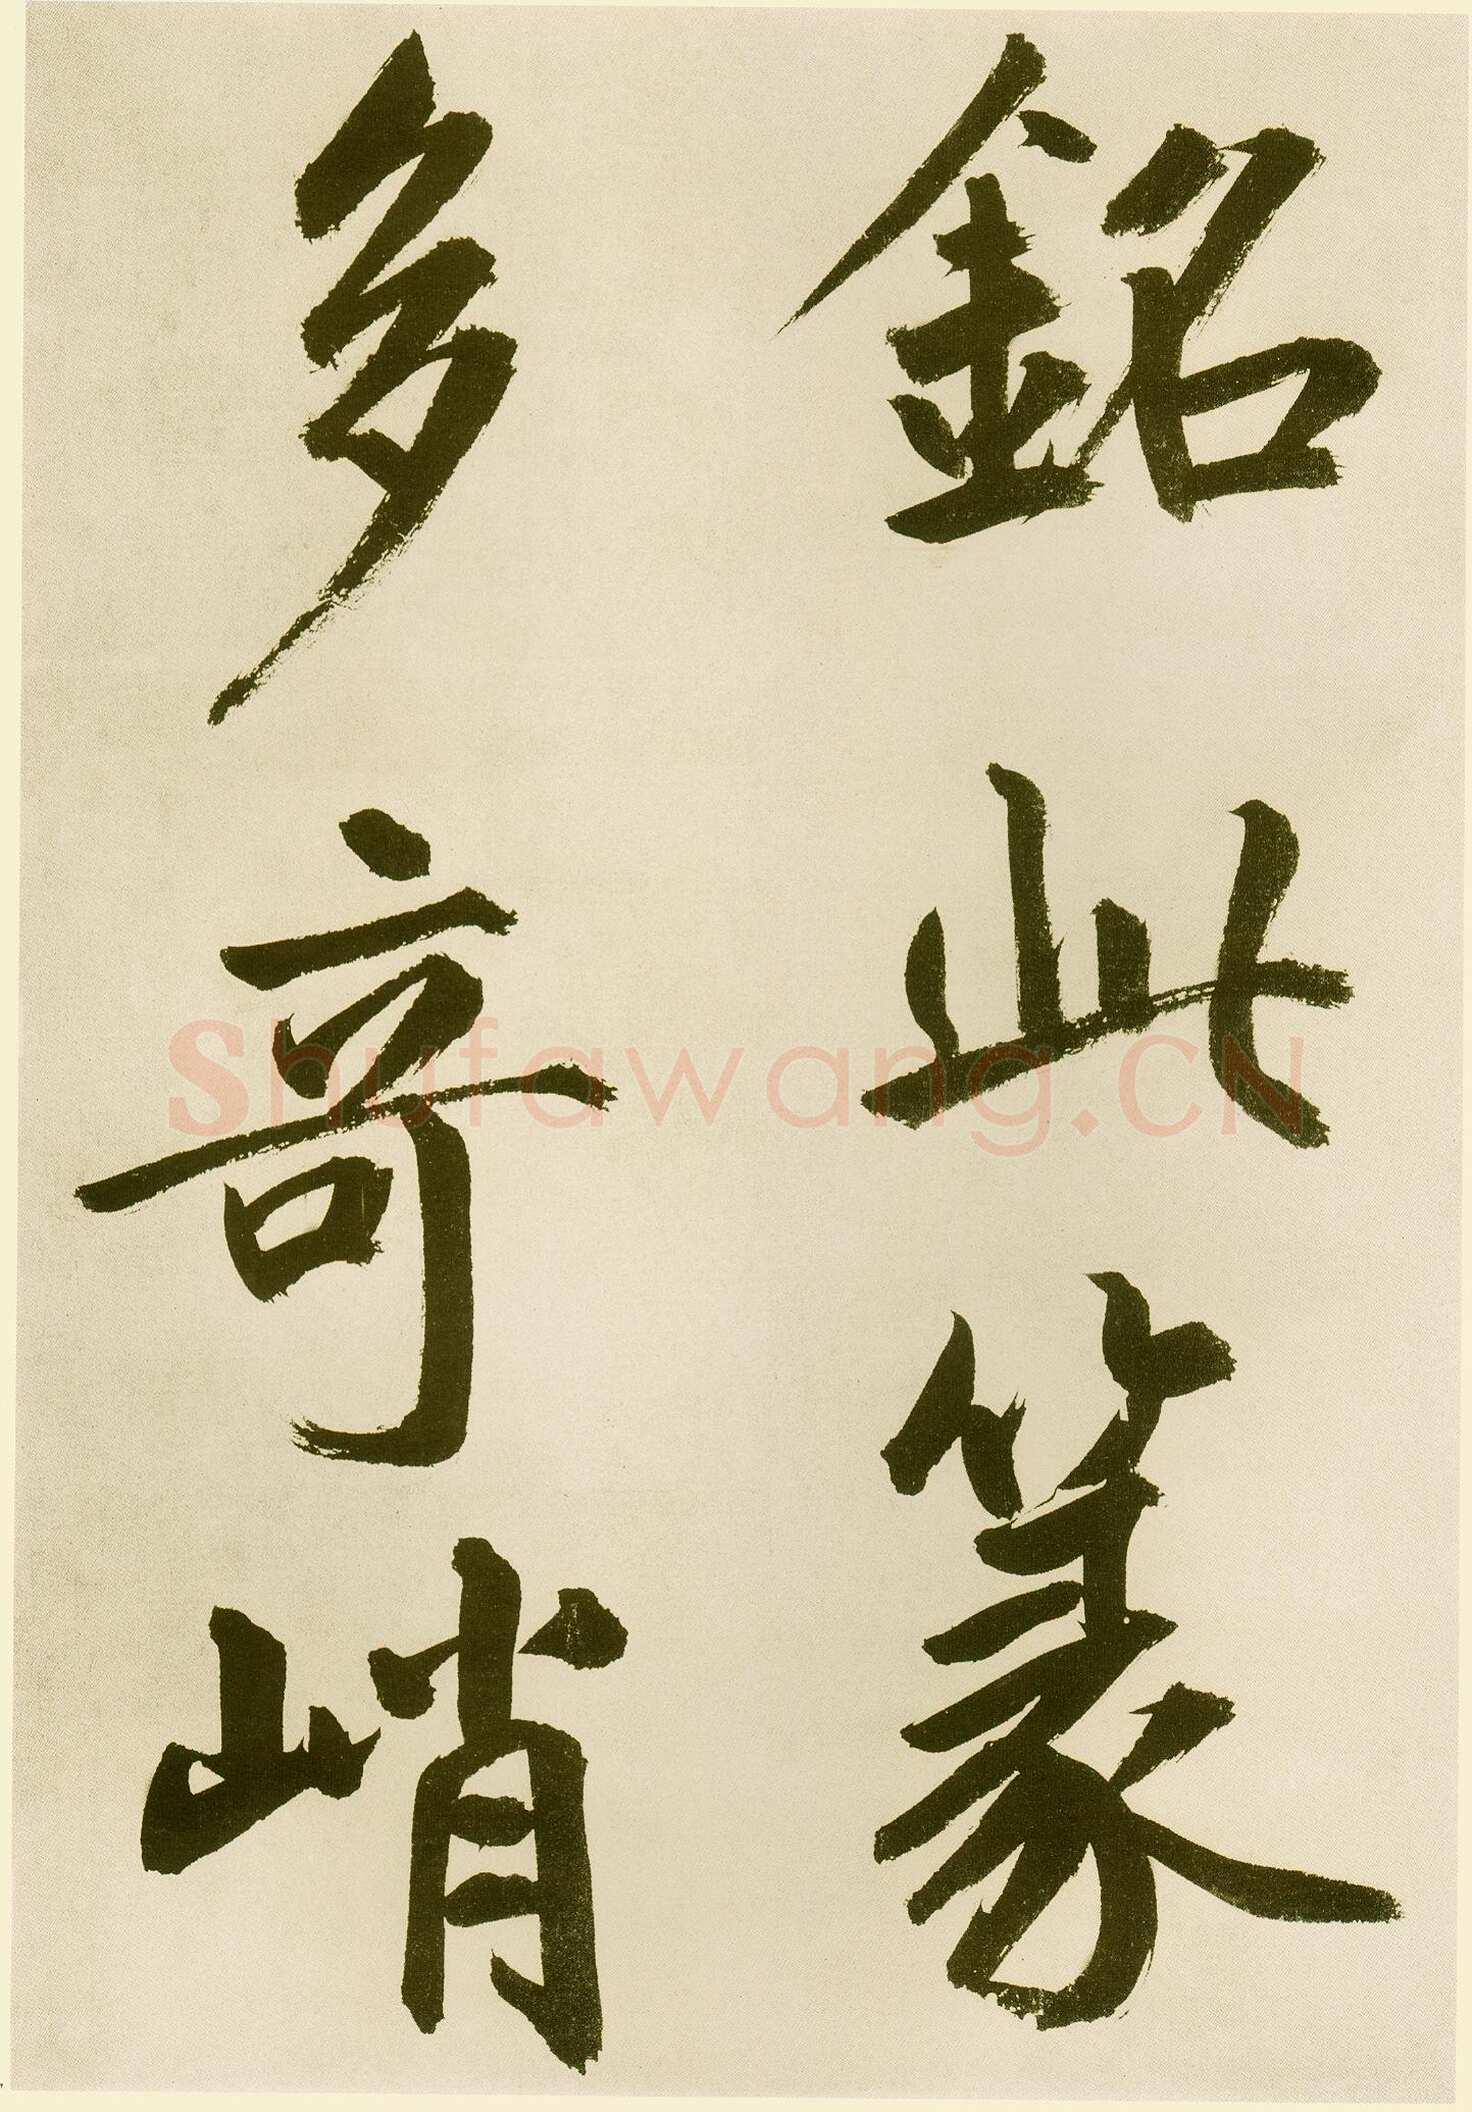 銘此篆
多奇峭
Shufawang.CN